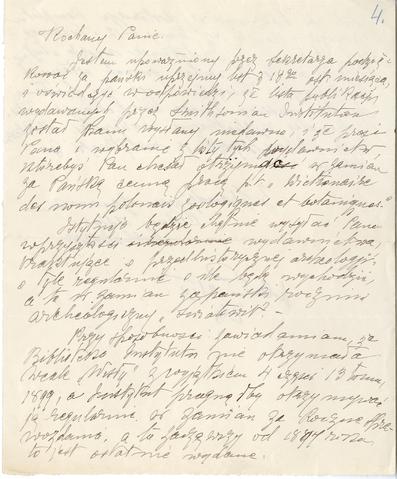 4.
Kochany Panie.
Jestem upoważniony przez sekretarza podzię-
kować za pański uprzejmy list z 18 ost. miesiąca,
i oświadczyć w odpowiedzi, że lista publikacji
wydawanych przez Smithsonian Institution
został Panu wysłany niedawno, i że prosi
Pana o wybranie z listy tych wydawnictw
któreby Pan chciał otrzymać w zamian
za Pańską cenną pracę p.t. "Dictionaire
des noms polonais zoologiques et botaniques."
Instytut będzie chętnie wysyłać Panu
w przyszłości wydawnictwa,
traktujące o przedhistorycznej archeologji,
o tyle regularnie o ile będą wychodzić,
a to w zamian za pański rocznik
archeologiczny "Światowit" -
Przy sposobności zawiadamiam, że
Biblioteka Instytutu nie otrzymała
wcale "Wisły" z wyjątkiem 4 części 13 tomu,
1899, a Instytut pragnąłby otrzymywać
ją regularnie w zamian za Roczne Spra-
wozdania, a to zacząwszy od 1897 roku
to jest ostatnie wydane.